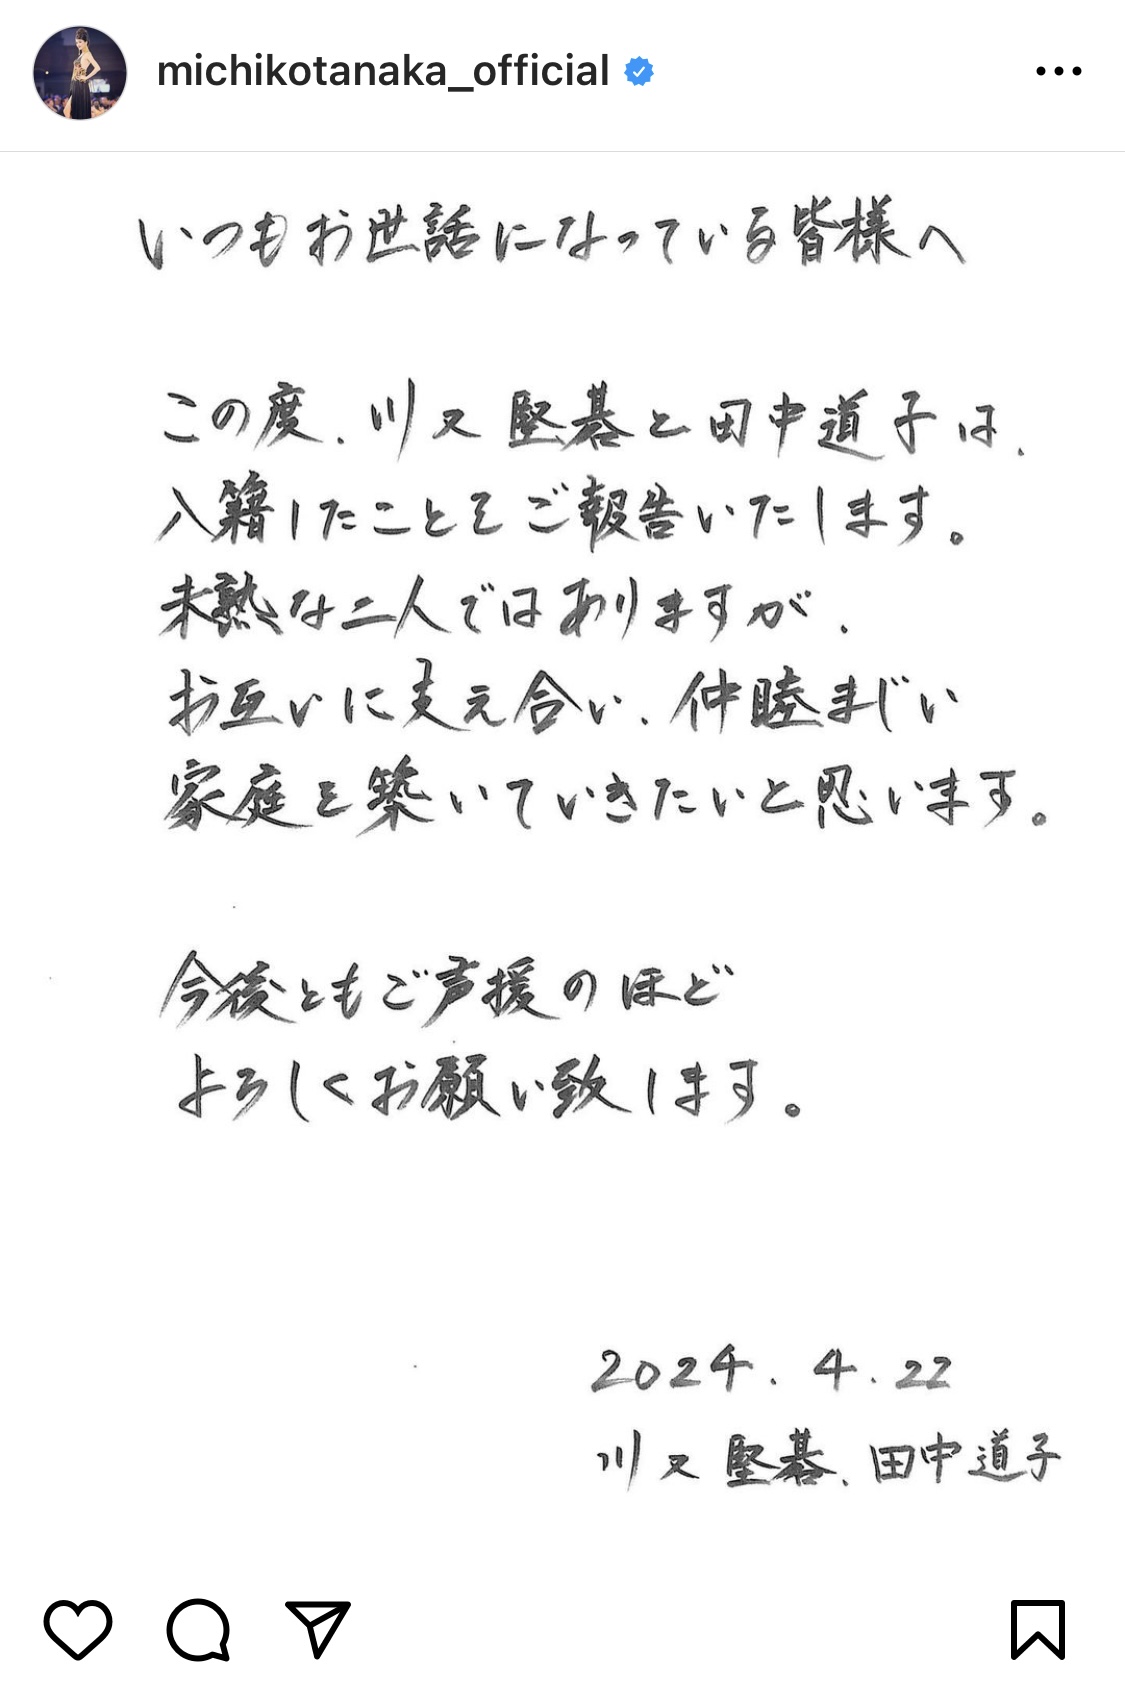 michikotanaka_official
いつもお世話になっている皆様へ
この度、川又 堅碁と田中道子は、
入籍したことをご報告いたします。
未熟な二人ではありますが、
お互いに支え合い、仲睦まじい
家庭を築いていきたいと思います。
今後ともご声援のほど
よろしくお願い致します。
2024.4.22
川又 堅碁、田中道子